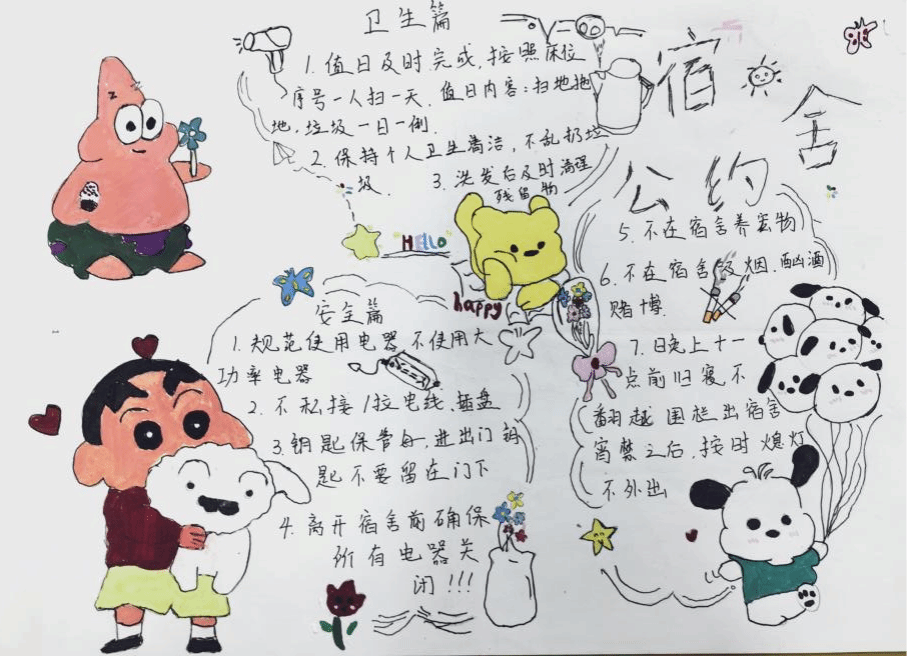 宿舍
公约
卫生篇
1. 值日及时完成, 按照床位
序号一人扫一天. 值日内容: 扫地拖
地, 垃圾一日一倒.
2. 保持个人卫生清洁, 不乱扔垃
圾.
3. 洗发后及时清理
残留物
HELLO
happy
安全篇
1. 规范使用电器 不使用大
功率电器
2. 不私接/拉电线、插盘
3. 钥匙保管好, 进出门钥
匙不要留在门下
4. 离开宿舍前确保
所有电器关
闭!!!
5. 不在宿舍养宠物
6. 不在宿舍吸烟. 酗酒
赌博.
7. 晚上十一
点前归寝不
翻越围栏出宿舍
宵禁之后, 按时熄灯
不外出